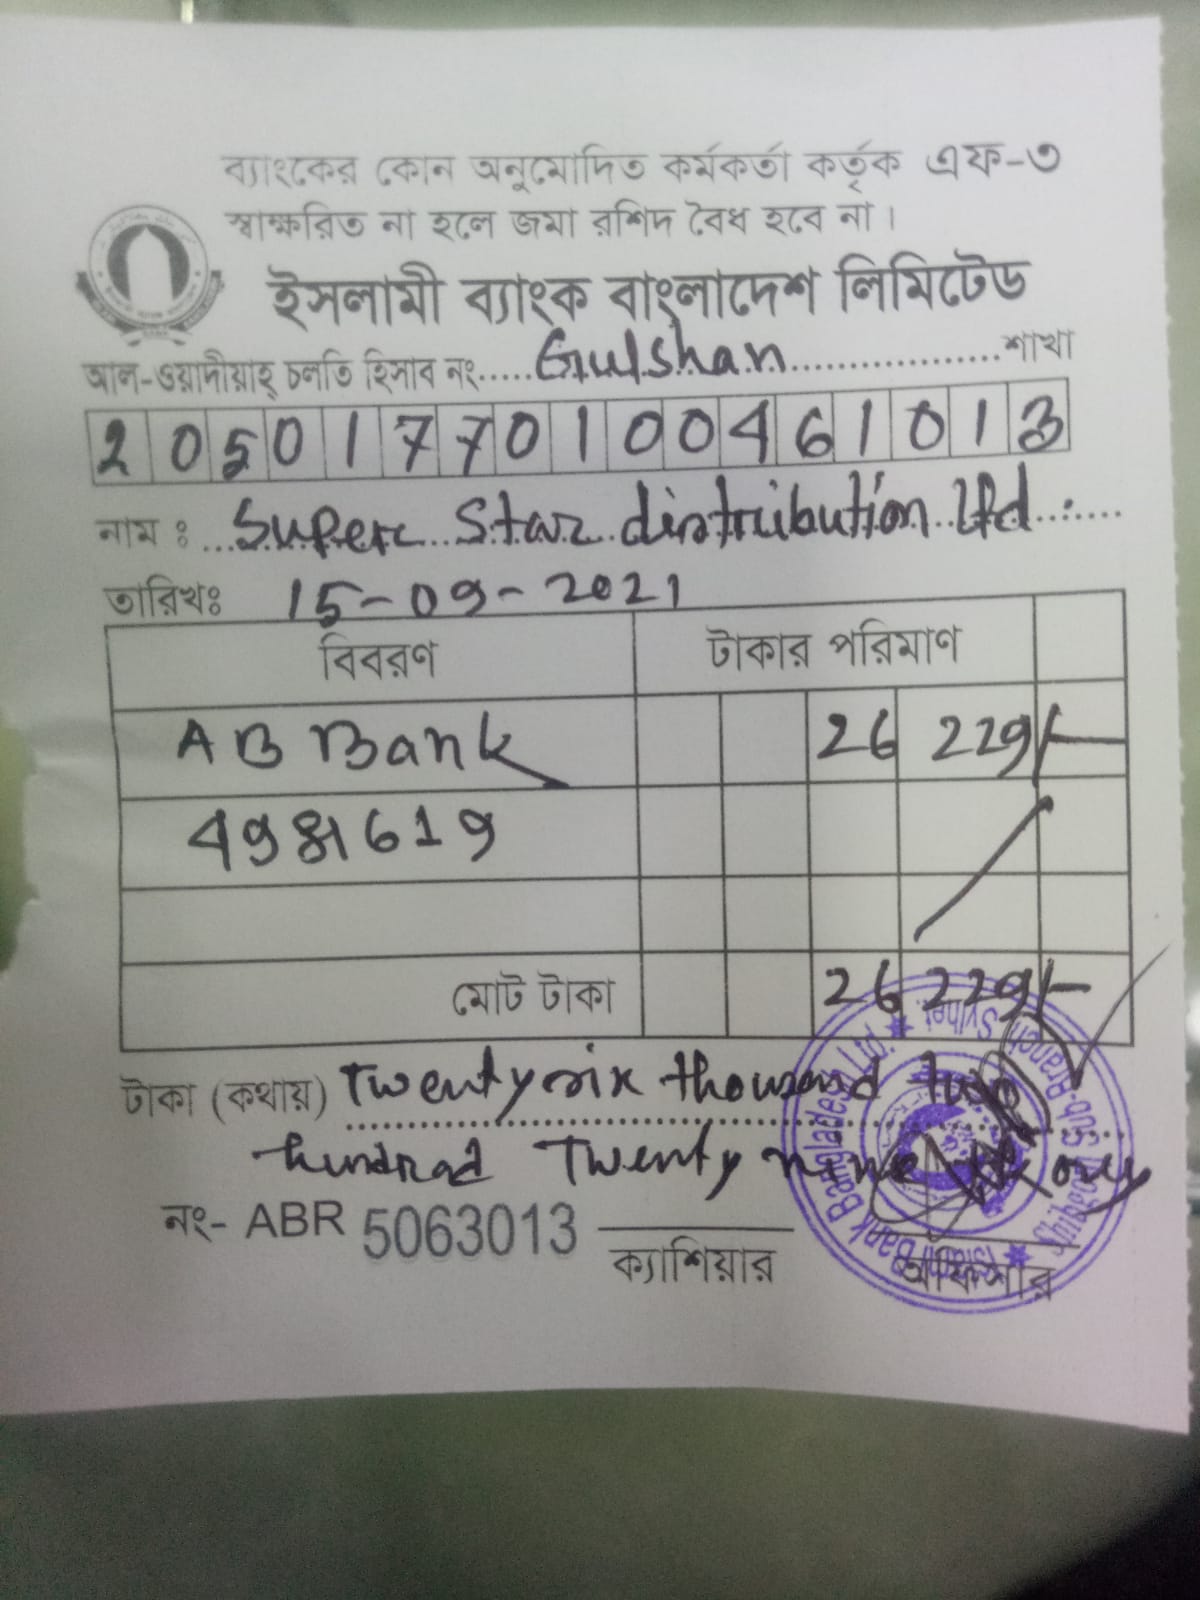 ব্যাংকের কোন অনুমোদিত কর্মকর্তা কর্তৃক এফ-৩
স্বাক্ষরিত না হলে জমা রশিদ বৈধ হবে না।
ইসলামী ব্যাংক বাংলাদেশ লিমিটেড
আল-ওয়াদীয়াহ্ চলতি হিসাব নং.....Gulshan.................শাখা
20501770100461013
নাম : ...Super Star distribution Ltd.....
তারিখঃ 15-09-2021
বিবরণ টাকার পরিমাণ
AB Bank 26 229/-
4981619
মোট টাকা 26 229/-
টাকা (কথায়) Twenty six thousand Two
hundrad Twenty nine only
নং- ABR 5063013 ক্যাশিয়ার অফিসার
Islami Bank Bangladesh Ltd. Sub-Branch, Sylhet.